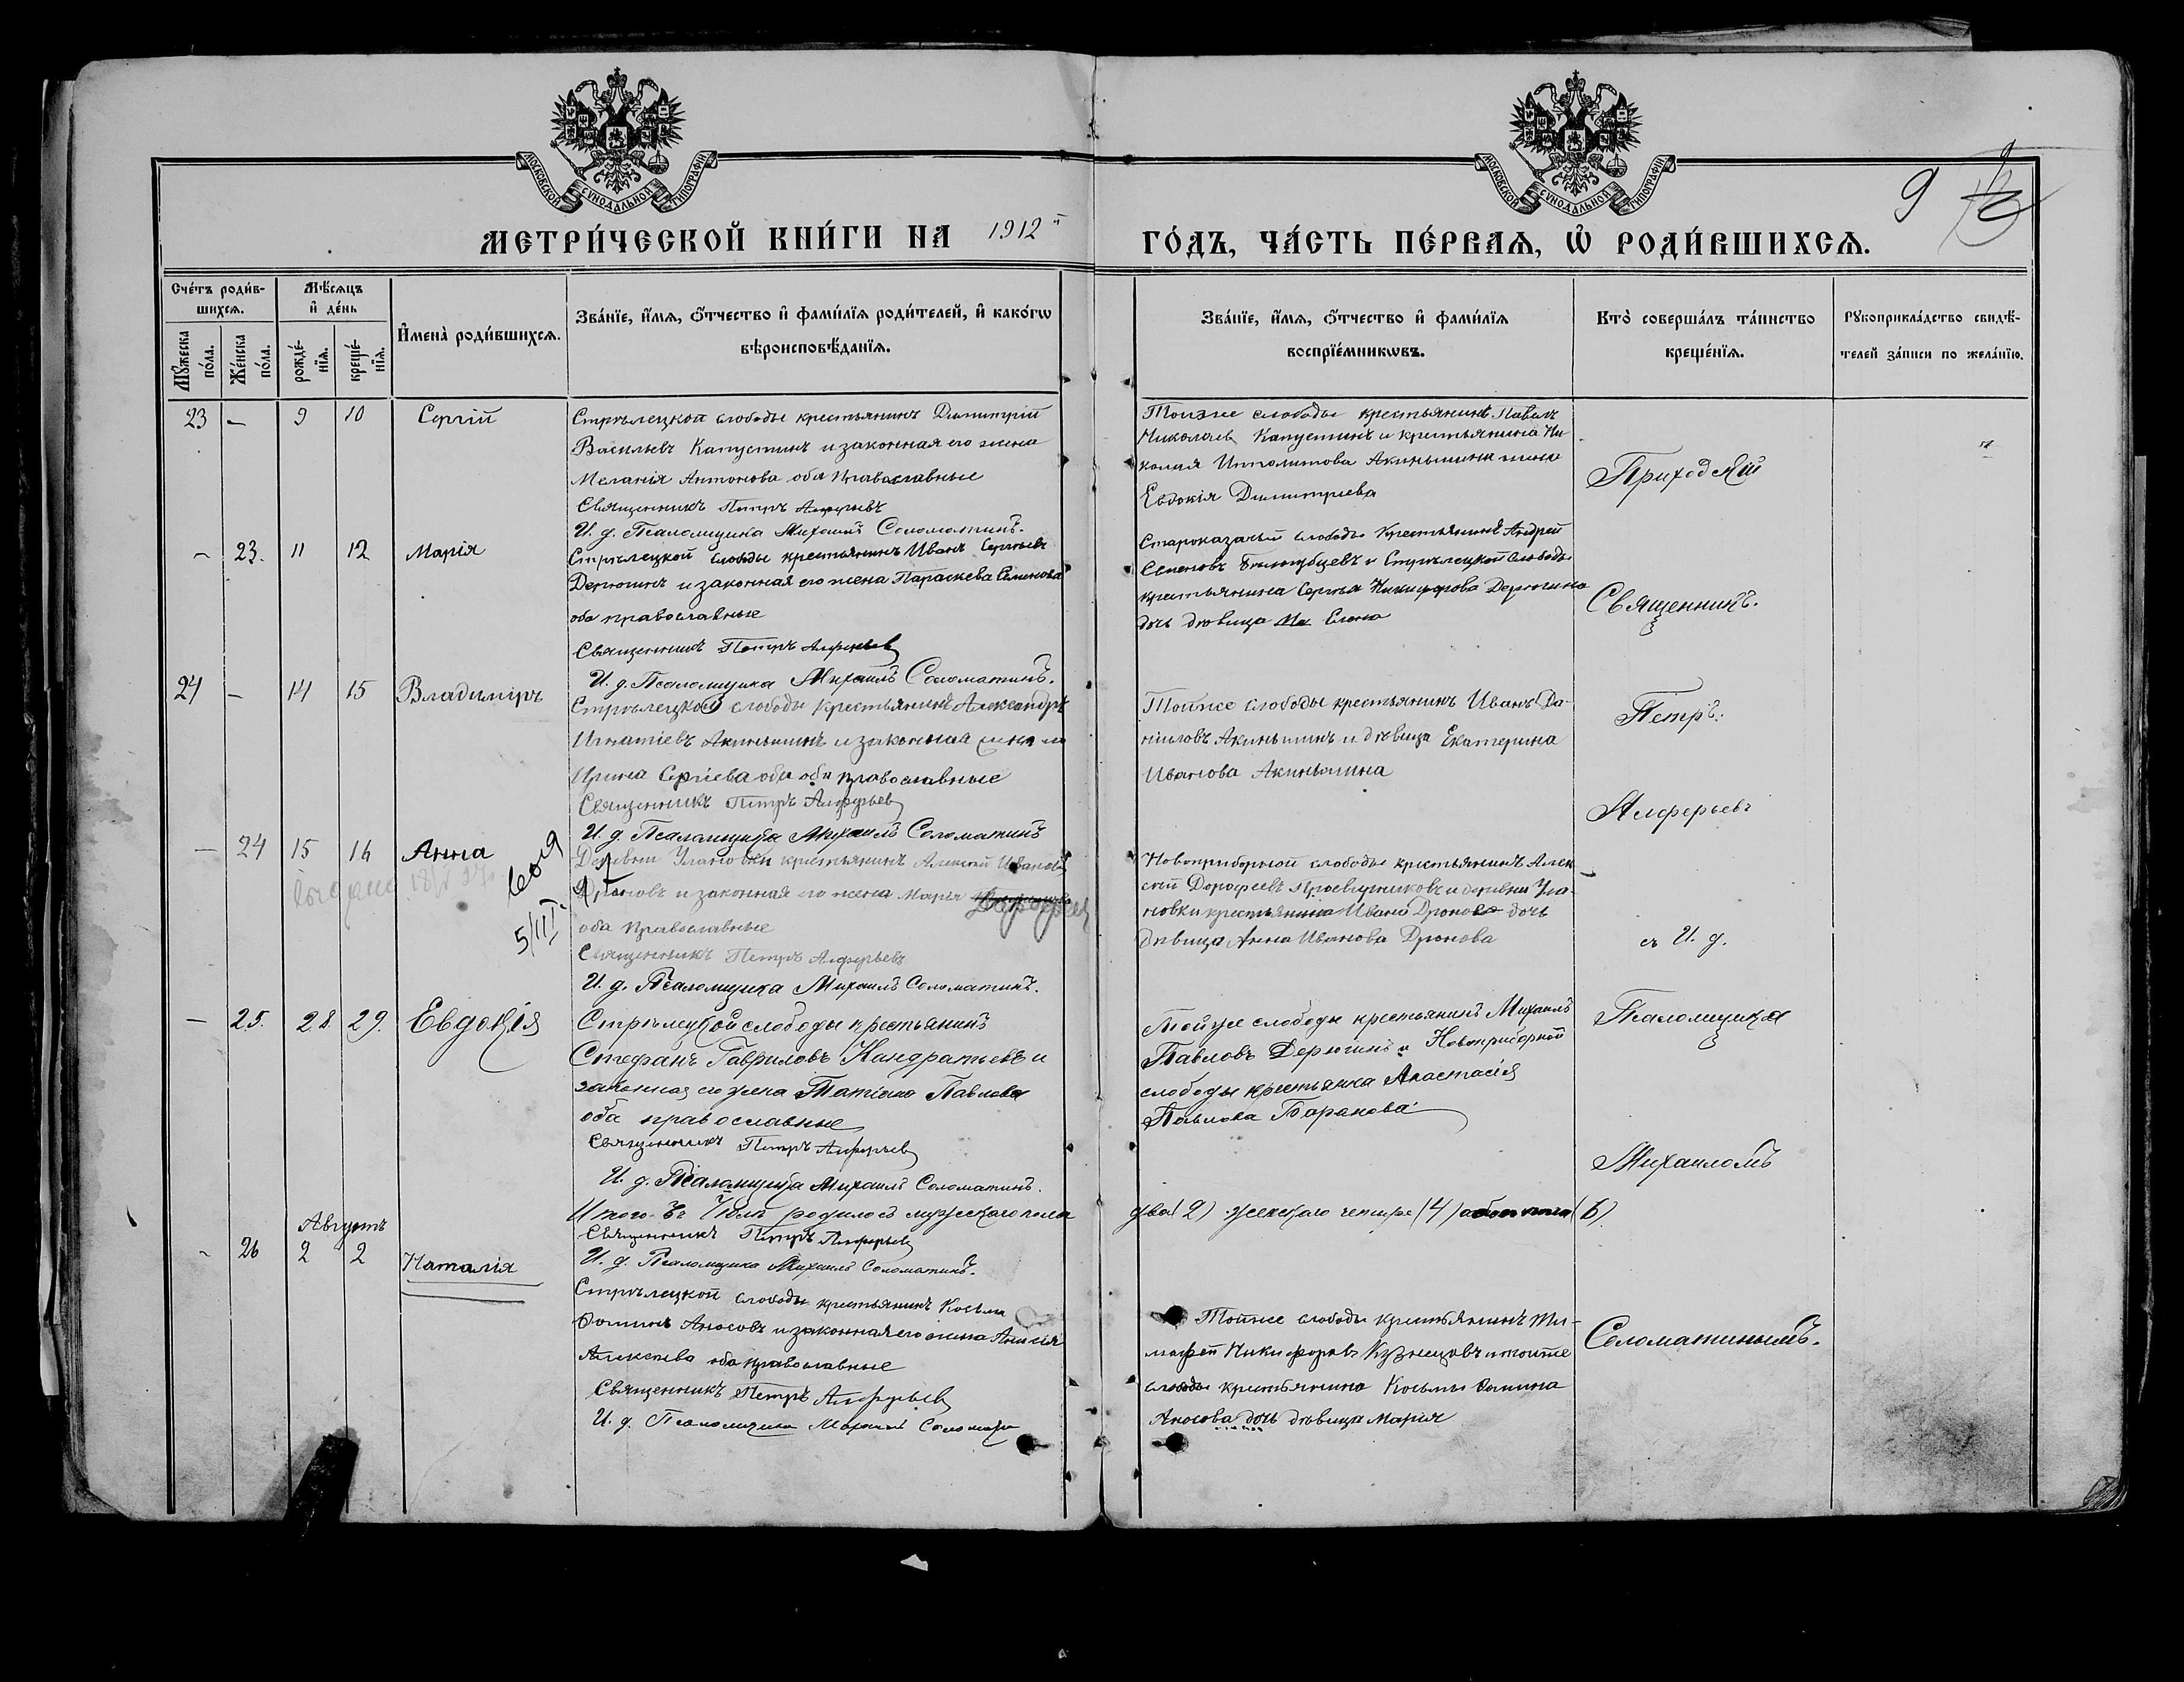 МОСКОВСКОЙ СУНОДАЛЬНОЙ ТИПОГРАФІИ
МОСКОВСКОЙ СУНОДАЛЬНОЙ ТИПОГРАФІИ
9
МЕТРИ́ЧЕСКОЙ КНИ́ГИ НА 1912 й
ГО́ДЪ, ЧА́СТЬ ПЕ́РВАѦ, Ѡ РОДИ́ВШИХСѦ.
Сче́тъ роди́в-
шихсѧ.
Мꙋ́жеска по́ла.
Же́нска по́ла.
Мѣ́сѧцъ
и҆ де́нь
рожде́-
нїѧ.
креще́-
нїѧ.
И҆мена̀ роди́вшихсѧ.
Зва́нїе, и҆́мѧ, ѻ҆́тчество и҆ фами́лїѧ роди́телей, и҆ како́гѡ
вѣроисповѣ́данїѧ.
Зва́нїе, и҆́мѧ, ѻ҆́тчество и҆ фами́лїѧ
воспрїе́мникѡвъ.
Кто̀ соверша́лъ та́инство
креще́нїѧ.
Рꙋкоприкла́дство свидѣ́-
телей за́писи по жела́нїю.
23 – 9 10 Сергій
Стрѣлецкой слободы крестьянинъ Димитрій
Васильевъ Капустинъ и законная его жена
Меланія Антонова оба православные
Священникъ Петръ Алферьевъ
И. д. Псаломщика Михаилъ Соломатинъ.
Тойже слободы крестьянинъ Павелъ
Николаев Капустинъ и крестьянина Ни-
колая Ипполитова Акиньшина жена
Евдокія Димитріева
– 23. 11 12 Марія
Стрѣлецкой слободы крестьянинъ Иванъ Сергѣевъ
Дерюгинъ и законная его жена Параскева Семенова
оба православные
Священникъ Петръ Алферьев
И. д. Псаломщика Михаилъ Соломатинъ.
Староказачьей слободы крестьянинъ Андрей
Семеновъ и Стрѣлецкой слободы
крестьянина Сергѣя Никифорова Дерюгина
дочь дѣвица Елена
24 – 14 15 Владиміръ
Стрѣлецкой слободы крестьянинъ Александръ
Игнатіевъ Акиньшинъ и законная жена его
Ирина Сергіева оба православные
Священникъ Петръ Алферьев
И. д. Псаломщика Михаилъ Соломатинъ
Тойже слободы крестьянинъ Иванъ Да-
ніиловъ Акиньшинъ и дѣвица Екатерина
Иванова Акиньшина
– 24 15 16 Анна
выдано
5/III
Деревни Улановки крестьянинъ Алексѣй Ивановъ
Дроновъ и законная его жена Марія
оба православные
Священникъ Петръ Алферьевъ
И. д. Псаломщика Михаилъ Соломатинъ.
Новоприборной слободы крестьянинъ Алек-
сѣй Дорофеевъ и деревни Ула-
новки крестьянина Ивана Дронова дочь
дѣвица Анна Иванова Дронова
– 25. 28. 29. Евдокія
Стрѣлецкой слободы крестьянинъ
Стефанъ Гавриловъ Кандратьевъ и
законная его жена Татіана Павлова
оба православные
Священникъ Петръ Алферьев
И. д. Псаломщика Михаилъ Соломатинъ.
Тойже слободы крестьянинъ Михаилъ
Павловъ Дерюгинъ и Новоприборной
слободы крестьянка Анастасія
Павлова Баранова
Итого въ Іюлѣ родилось мужескаго пола
два (2) женскаго четыре (4) обоего пола (6)
Священникъ Петръ Алферьев
И. д. Псаломщика Михаилъ Соломатинъ.
Августъ
– 26 2 2 Наталія
Стрѣлецкой слободы крестьянинъ Косьма
Ѳоминъ Аносовъ и законная его жена Анисія
Алексѣева оба православные
Священникъ Петръ Алферьев
И. д. Псаломщика Михаилъ Соломати
Тойже слободы крестьянинъ Ти-
мофей Никифоровъ Кузнецовъ и тойже
слободы крестьянина Косьмы Ѳомина
Аносова дочь дѣвица Марія
Приходскій
Священникъ.
Петръ.
Алферьевъ
съ И. д.
Псаломщика
Михаиломъ
Соломатинымъ.